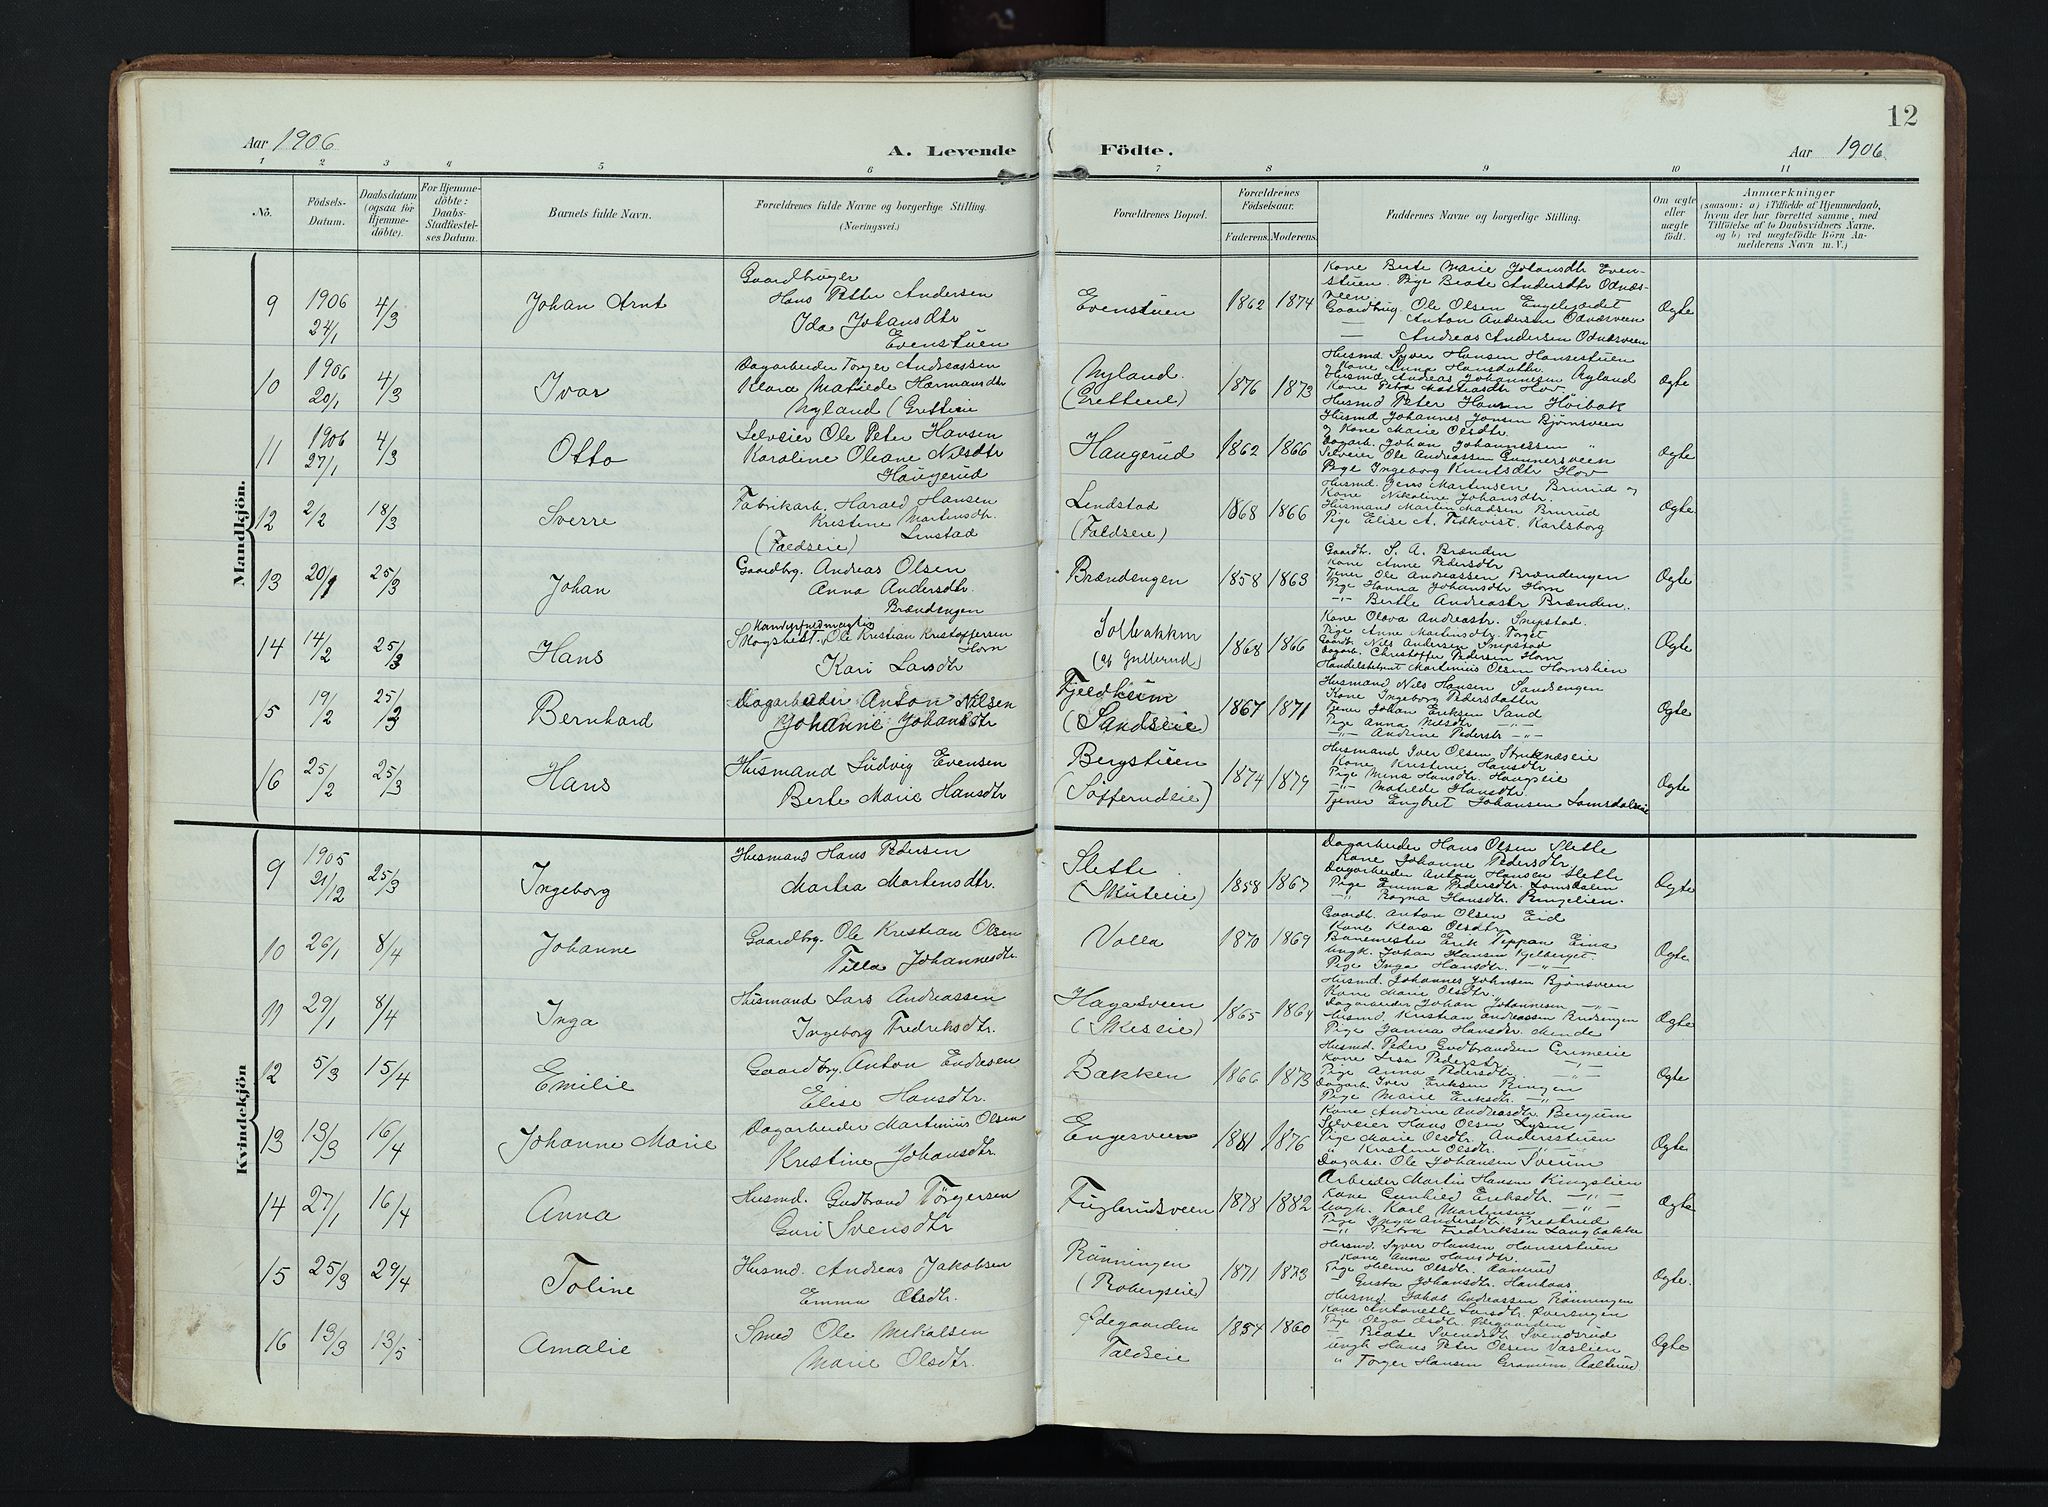 12
Aar 1906
A. Levende
Födte.
Aar 1906
1 2 3 4 5 6 7 8 9 10 11
No.
Födsels-Datum.
Daabsdatum (ogsaa for Hjemme-döbte).
For Hjemme-döbte: Daabs-Stadfæstel-ses Datum.
Barnets fulde Navn.
Forældrenes fulde Navne og borgerlige Stilling. (Næringsvei.)
Forældrenes Bopæl.
Forældrenes Födselsaar.
Faderens. Moderens.
Faddernes Navne og borgerlige Stilling.
Om ægte eller uægte födt.
Anmærkninger
(saasom: a) i Tilfælde af Hjemmedaab, hvem der har forrettet samme, med Tilföielse af to Daabsvidners Navne, og b) ved uægtefödte Börn An-melderens Navn m. V.)
Mandkjön.
9 1906 24/1 4/3 Johan Arnt
Gaardbruger
Hans Petter Andersen
Ida Johansdtr
Evenstuen
Evenstuen 1862 1874
Kone Berte Marie Johansdtr Even-
stuen. Pige Beate Andersdtr Odnæs-
veen.
Gaardbrug. Ole Olsen Engehjordet
— Anton Andersen Odnæsveen
— Andreas Andersen Odnæsveen
Ægte
10 1906 20/1 4/3 Ivar
Dagarbeider Torger Andreassen
Klara Matilde Hermansdtr
Nyland (Gretteeie
Nyland.
(Gretteeie) 1876 1873
Husmd. Syver Hansen Hansestuen
og Kone Anna Hansdatter
Husmd. Andreas Johannesen Nyland
Kone Petra Mattiasdtr Hov
Husmd Peter Hansen Höibak
Ægte
11 1906 27/1 4/3 Otto
Selveier Ole Peter Hansen
Karoline Oleane Nilsdtr
Haugerud
Haugerud 1862 1866
Husmd Johannes Jonsen Bjørnsveen
og Kone Marie Olsdtr.
Dagarb. Johan Johannessen "
Selveier Ole Andreassen Gunnersveen
Pige Ingeborg Knutsdtr Hov
Ægte
12 2/2 18/3 Sverre
Fabrikarb. Harald Hansen
Kristine Martinsdtr.
(Faldseie) Linstad
Lendstad
(Faldseie) 1868 1866
Husmd. Jens Martinsen Brurud og
Kone Nikoline Johansdtr.
Husmand Martin Madsen Brurud
Pige Elise A. Fidkvist. Karlsborg
Ægte
13 20/1 25/3 Johan
Gaardbrg. Andreas Olsen
Anna Andersdtr.
Brændengen
Brændengen 1858 1863
Gaardbr. S. A. Brænden
Kone Anne Pedersdtr
Tjener Ole Andreassen Brændengen
Pige Hanna Johansdtr Horn
-"- Bertle Andreastr Brænden.
Ægte
14 14/2 25/3 Hans
Skogsbest. Ole Kristian Kristoffersen
Horn
Kari Larsdtr
Solbakken
1868 1866
Kone Olava Andreastr. Snipstad.
Pige Anne Martinsdtr. Torget
Gaardbr. Nils Andersen Snipstad
Dagarb. Christoffer Pedersen Horn
Martinius Olsen Hornslien
Ægte
5 19/2 25/3 Bernhard
Dagarbeider Anton Nilsen
Johanne Johansdtr
Fjeldheim
(Sandseie) 1867 1871
Husmand Nils Hansen Sandsengen
Kone Ingeborg Pedersdatter
Tjener Johan Eriksen Sand
Pige Anna Nilsdtr -"-
-"- Andrine Pederstr -"-
Ægte
16 25/2 25/3 Hans
Husmand Ludvig Evensen
Berte Marie Hansdtr
Bergstuen
(Søfferudeie) 1874 1879
Husmand Iver Olsen
Kone Kristine Hansdtr
Pige Mina Hansdtr. Haugseie
-"- Matilde Hansdtr.
Tjener Engbret Johansen Lomsdalseie
Ægte
Kvindekjön
9 1905 21/12 25/3 Ingeborg
Husmand Hans Pedersen
Martea Martensdtr.
Slette.
(Skuteeie) 1858 1867
Dagarbeider Hans Olsen Slette
Kone Johanne Pedersdtr.
Dagarbeider Anton Hansen Slette
Pige Emma Pedersdtr. Lomsdalen
-"- Ragna Hansdtr. Ringelien.
Ægte
10 26/1 8/4 Johanne
Gaardbrg. Ole Kristian Olsen
Tilla Johannesdtr.
Volla 1870 1869
Gaardb. Anton Olsen Eid
Kone Klara Olsdtr
Banemester Erik Teppan Eina
Ungk. Johan Hansen Kjelberget
Pige Inga Hansdtr. -"-
Ægte
11 29/1 8/4 Inga
Husmand Lars Andreassen
Ingeborg Fredriksdtr.
Hagasveen
1865 1864
Husmd. Johannes Johnsen Bjørnsveen
Kone Marie Olsdtr.
Dagarbeider Johan Johannesen -"-
Husmd. Kristian Andreassen
Pige Janna Hansdtr. Minde
Ægte
12 5/3 15/4 Emilie
Gaardbrg. Anton Endresen
Elise Hansdtr.
Bakken 1866 1873
Husmd. Peder Gudbrandsen
Kone Lisa Pederstr -"-
Pige Anna Pedersdtr. -"-
Dagarb. Iver Eriksen Ringen
Pige Marie Eriksdtr. -"-
Ægte
13 13/3 16/4 Johanne Marie
Dagarbeider Martinius Olsen
Kristine Johansdtr.
Engesveen 1881 1876
Kone Andrine Andreasdtr. Bergum
Selveier Hans Olsen Lysen
Pige Marie Olsdtr. Andersstuen
" Kristine Olsdtr. -"-
Dagarb. Ole Johansen Sveum
Ægte
14 27/1 16/4 Anna
Husmd. Gudbrand Törgersen
Guri Svensdtr
Fuglerudsveen 1878 1882
Arbeider Martin Hansen Kingslien
Kone Gunhild Eriksdtr. -"-
Ungk. Karl Martinsen -"-
Pige Inga Andersdtr
-"- Petra Fredriksen Langbakke
Ægte
15 25/3 29/4 Toline
Husmd. Andreas Jakobsen
Emma Olsdtr.
Rönningen
(Robergseie) 1871 1873
Husmd. Syver Hansen Hansestuen
Kone Anna Hansdtr.
Pige Helene Olsdtr.
" Gusta Johansdtr.
Husmd. Jakob Andreassen Rönningen
Ægte.
16 13/3 13/5 Amalie
Smed Ole Mikalsen
Marie Olsdtr.
Ødegaarden
Faldseie 1854 1860
Kone Antonette Larsdtr.
Pige Olga Olsdtr. Ødegaarden
-"- Beate Svendsdtr Svendsrud
Ungk Hans Peter Olsen Vaslien
" Torger Hansen
Ægte